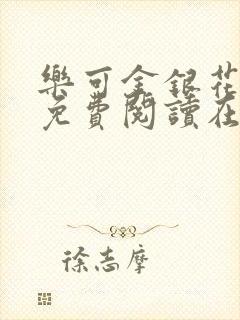 樂可金銀花
免費閱讀在
徐志摩